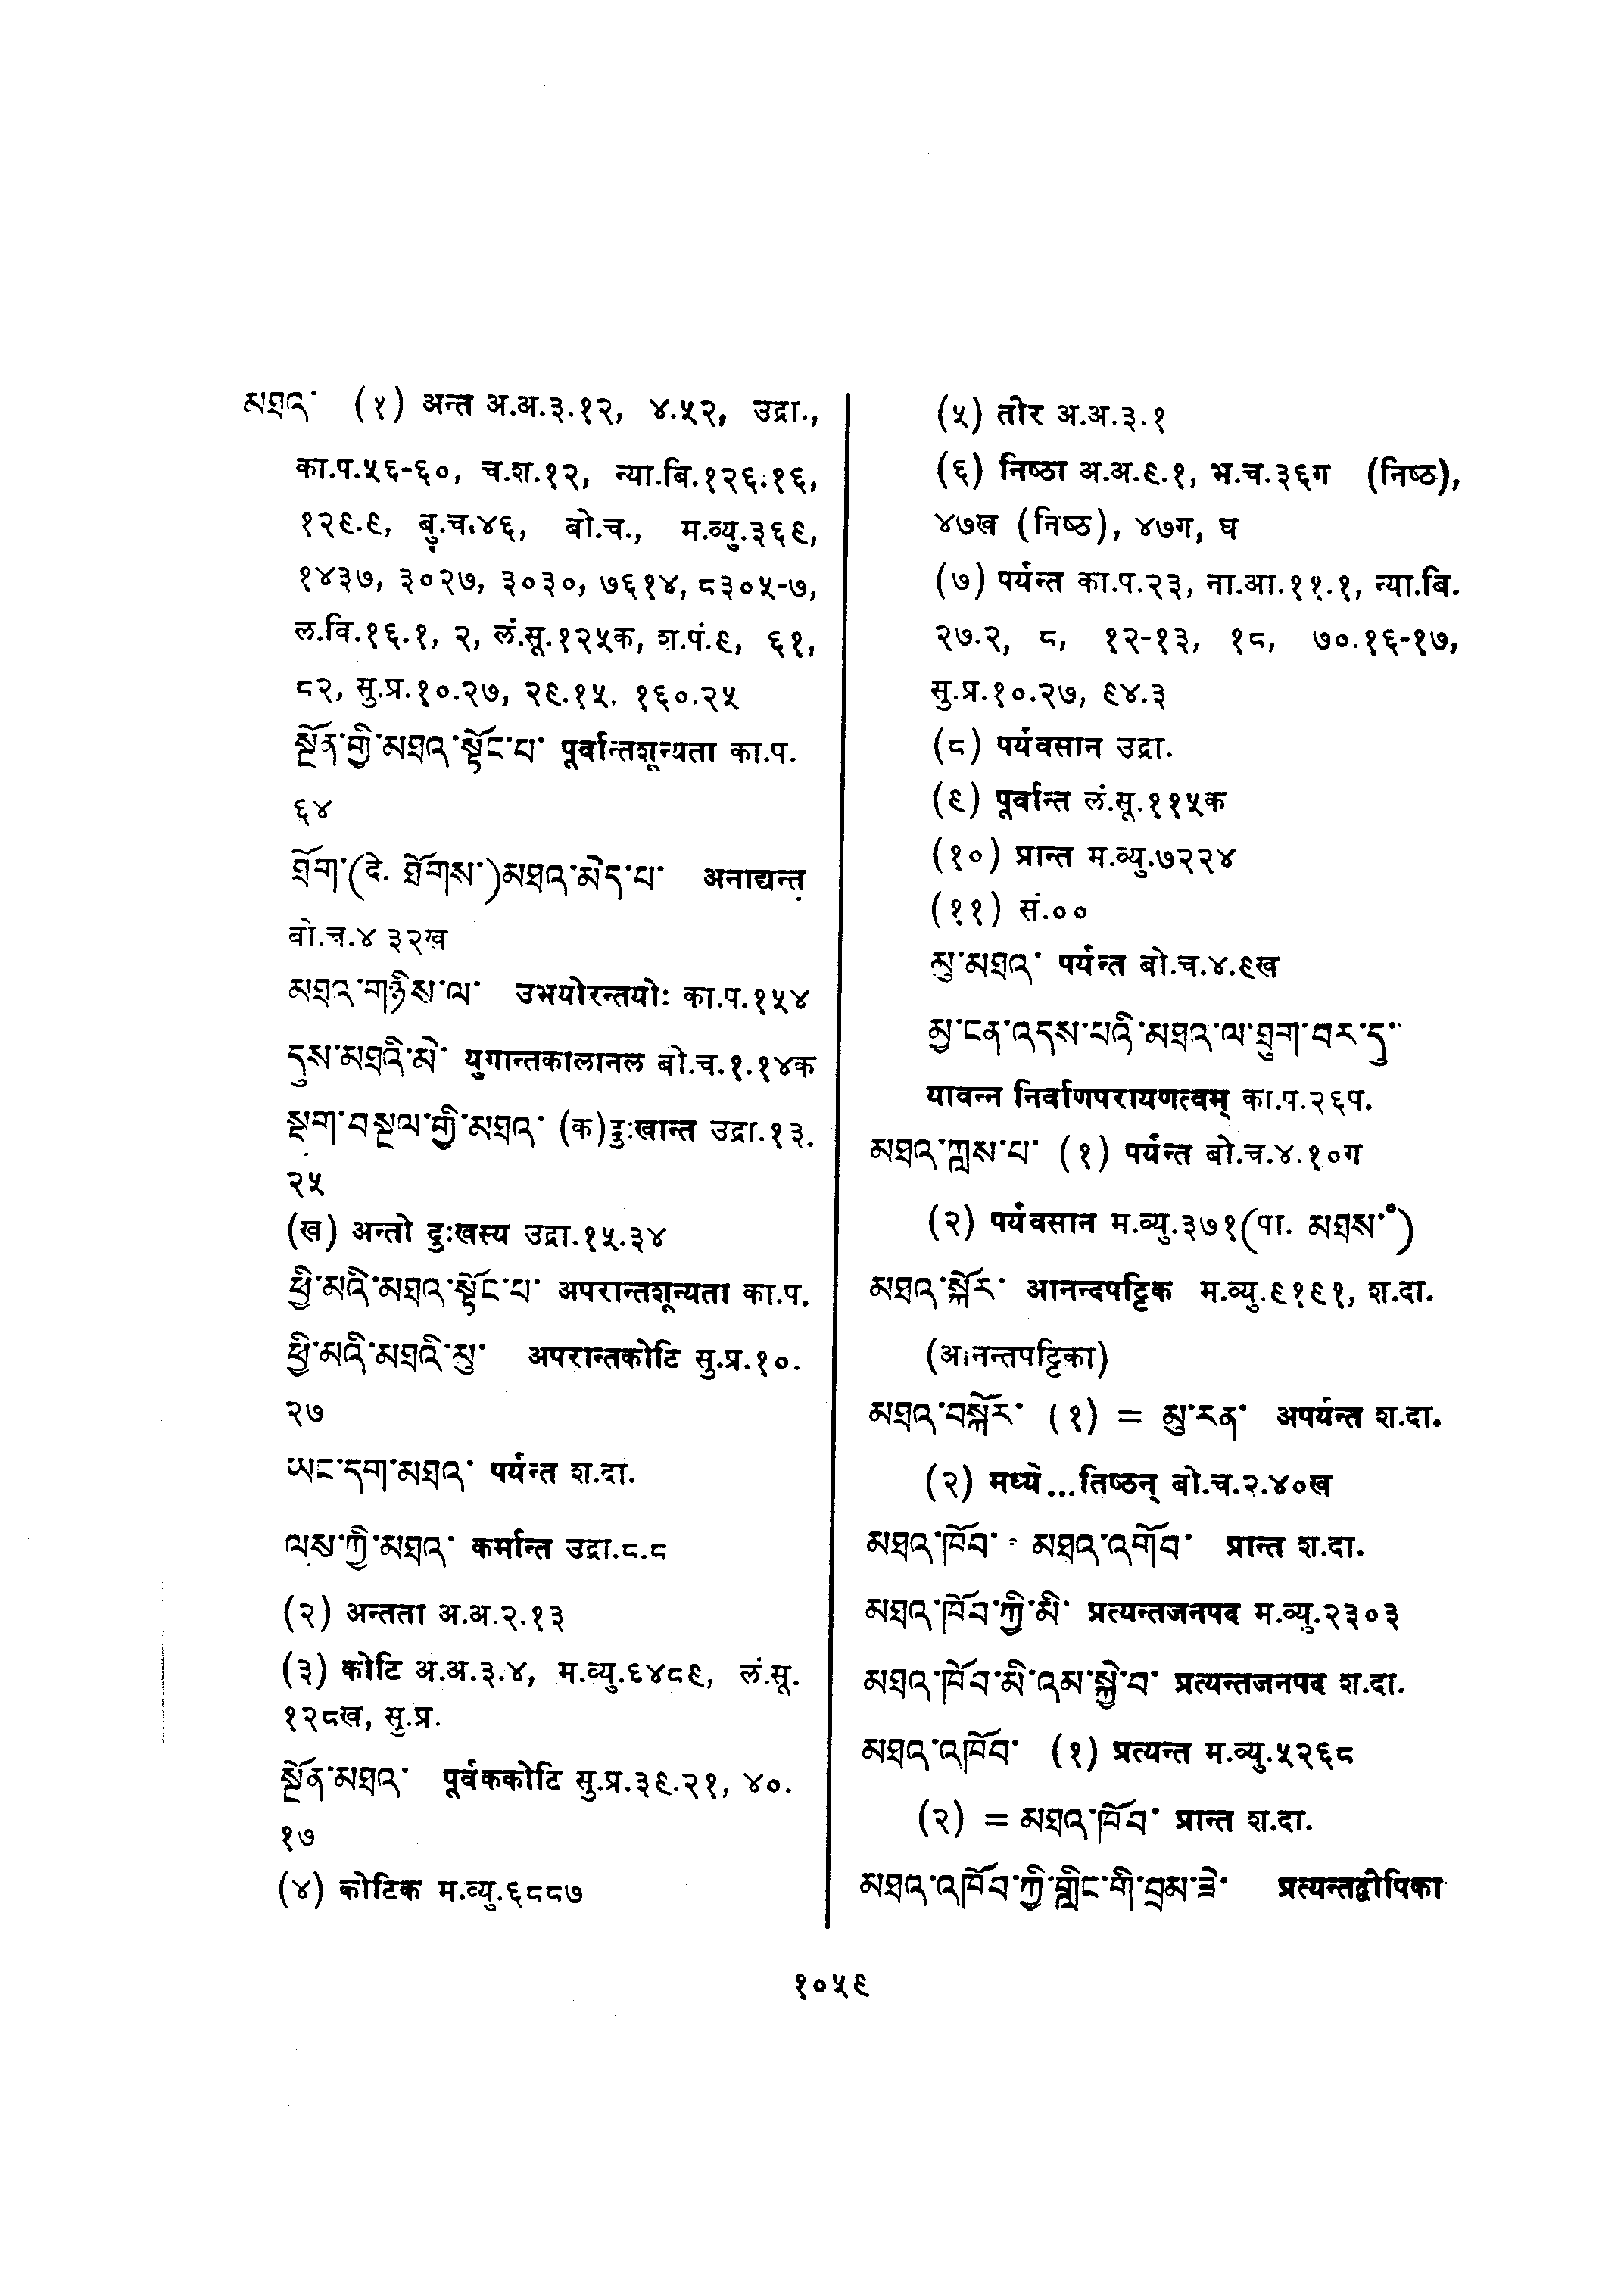 མཐའ་ (१) अन्त अ.अ.३.१२, ४.५२, उद्रा.,
का.प.५६-६०, च.श.१२, न्या.बि.१२६.१६,
१२९.९, बु.च.४६, बो.च., म.व्यु.३६९,
१४३७, ३०२७, ३०३०, ७६१४, ८३०५-७,
ल.वि.१६.१, २, लं.सू.१२५क, श.पं.९, ६१,
८२, सु.प्र.१०.२७, २९.१५. १६०.२५
སྔོན་གྱི་མཐའ་སྟོང་པ་ पूर्वान्तशून्यता का.प.
६४
ཐོག་(दे. ཐོགས་)མཐའ་མེད་པ་ अनाद्यन्त
बो.च.४ ३२ख
མཐའ་གཉིས་ལ་ उभयोरन्तयोः का.प.१५४
དུས་མཐའི་མེ་ युगान्तकालानल बो.च.१.१४क
སྡུག་བསྔལ་གྱི་མཐའ་ (क)दुःखान्त उद्रा.१३.
२५
(ख) अन्तो दुःखस्य उद्रा.१५.३४
ཕྱི་མའི་མཐའ་སྟོང་པ་ अपरान्तशून्यता का.प.
ཕྱི་མའི་མཐའི་མུ་ अपरान्तकोटि सु.प्र.१०.
२७
ཡང་དག་མཐའ་ पर्यन्त श.दा.
ལས་ཀྱི་མཐའ་ कर्मान्त उद्रा.८.८
(२) अन्तता अ.अ.२.१३
(३) कोटि अ.अ.३.४, म.व्यु.६४८९, लं.सू.
१२८ख, सु.प्र.
སྔོན་མཐའ་ पूर्वककोटि सु.प्र.३९.२१, ४०.
१७
(४) कोटिक म.व्यु.६८८७
(५) तीर अ.अ.३.१
(६) निष्ठा अ.अ.९.१, भ.च.३६ग (निष्ठ),
४७ख (निष्ठ), ४७ग, घ
(७) पर्यन्त का.प.२३, ना.आ.११.१, न्या.बि.
२७.२, ८, १२-१३, १८, ७०.१६-१७,
सु.प्र.१०.२७, ९४.३
(८) पर्यवसान उद्रा.
(९) पूर्वान्त लं.सू.११५क
(१०) प्रान्त म.व्यु.७२२४
(११) सं.००
མུ་མཐའ་ पर्यन्त बो.च.४.९ख
མྱ་ངན་འདས་པའི་མཐའ་ལ་ཐུག་བར་དུ་
यावन्न निर्वाणपरायणत्वम् का.प.२६प.
མཐའ་ཀླས་པ་ (१) पर्यन्त बो.च.४.१०ग
(२) पर्यवसान म.व्यु.३७१(पा. མཐས་°)
མཐའ་སྐོར་ आनन्दपट्टिक म.व्यु.९१९१, श.दा.
(आनन्तपट्टिका)
མཐའ་བསྐོར་ (१) = མུ་རན་ अपर्यन्त श.दा.
(२) मध्ये...तिष्ठन् बो.च.२.४०ख
མཐའ་ཁོབ་ = མཐའ་འགོབ་ प्रान्त श.दा.
མཐའ་ཁོབ་ཀྱི་མི་ प्रत्यन्तजनपद म.व्यु.२३०३
མཐའ་ཁོབ་མི་འམ་སྐྱེ་བ་ प्रत्यन्तजनपद श.दा.
མཐའ་འཁོབ་ (१) प्रत्यन्त म.व्यु.५२६८
(२) = མཐའ་ཁོབ་ प्रान्त श.दा.
མཐའ་འཁོབ་ཀྱི་གླིང་གི་བྲམ་ཟེ་ प्रत्यन्तद्वीपिका
१०५९